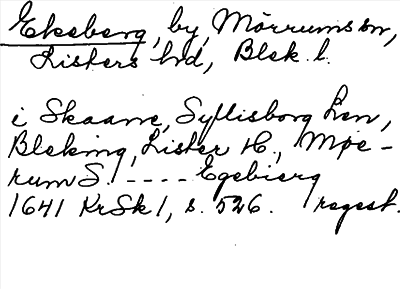 Ekeberg, by, Mörrums sn,
Listers hd, Blek. l.
i Skaane, Syllisborg Len,
Bleking, Lister H., Møe-
rum S. ---- Egebierg
1641 KrSk 1, s. 526. regest.